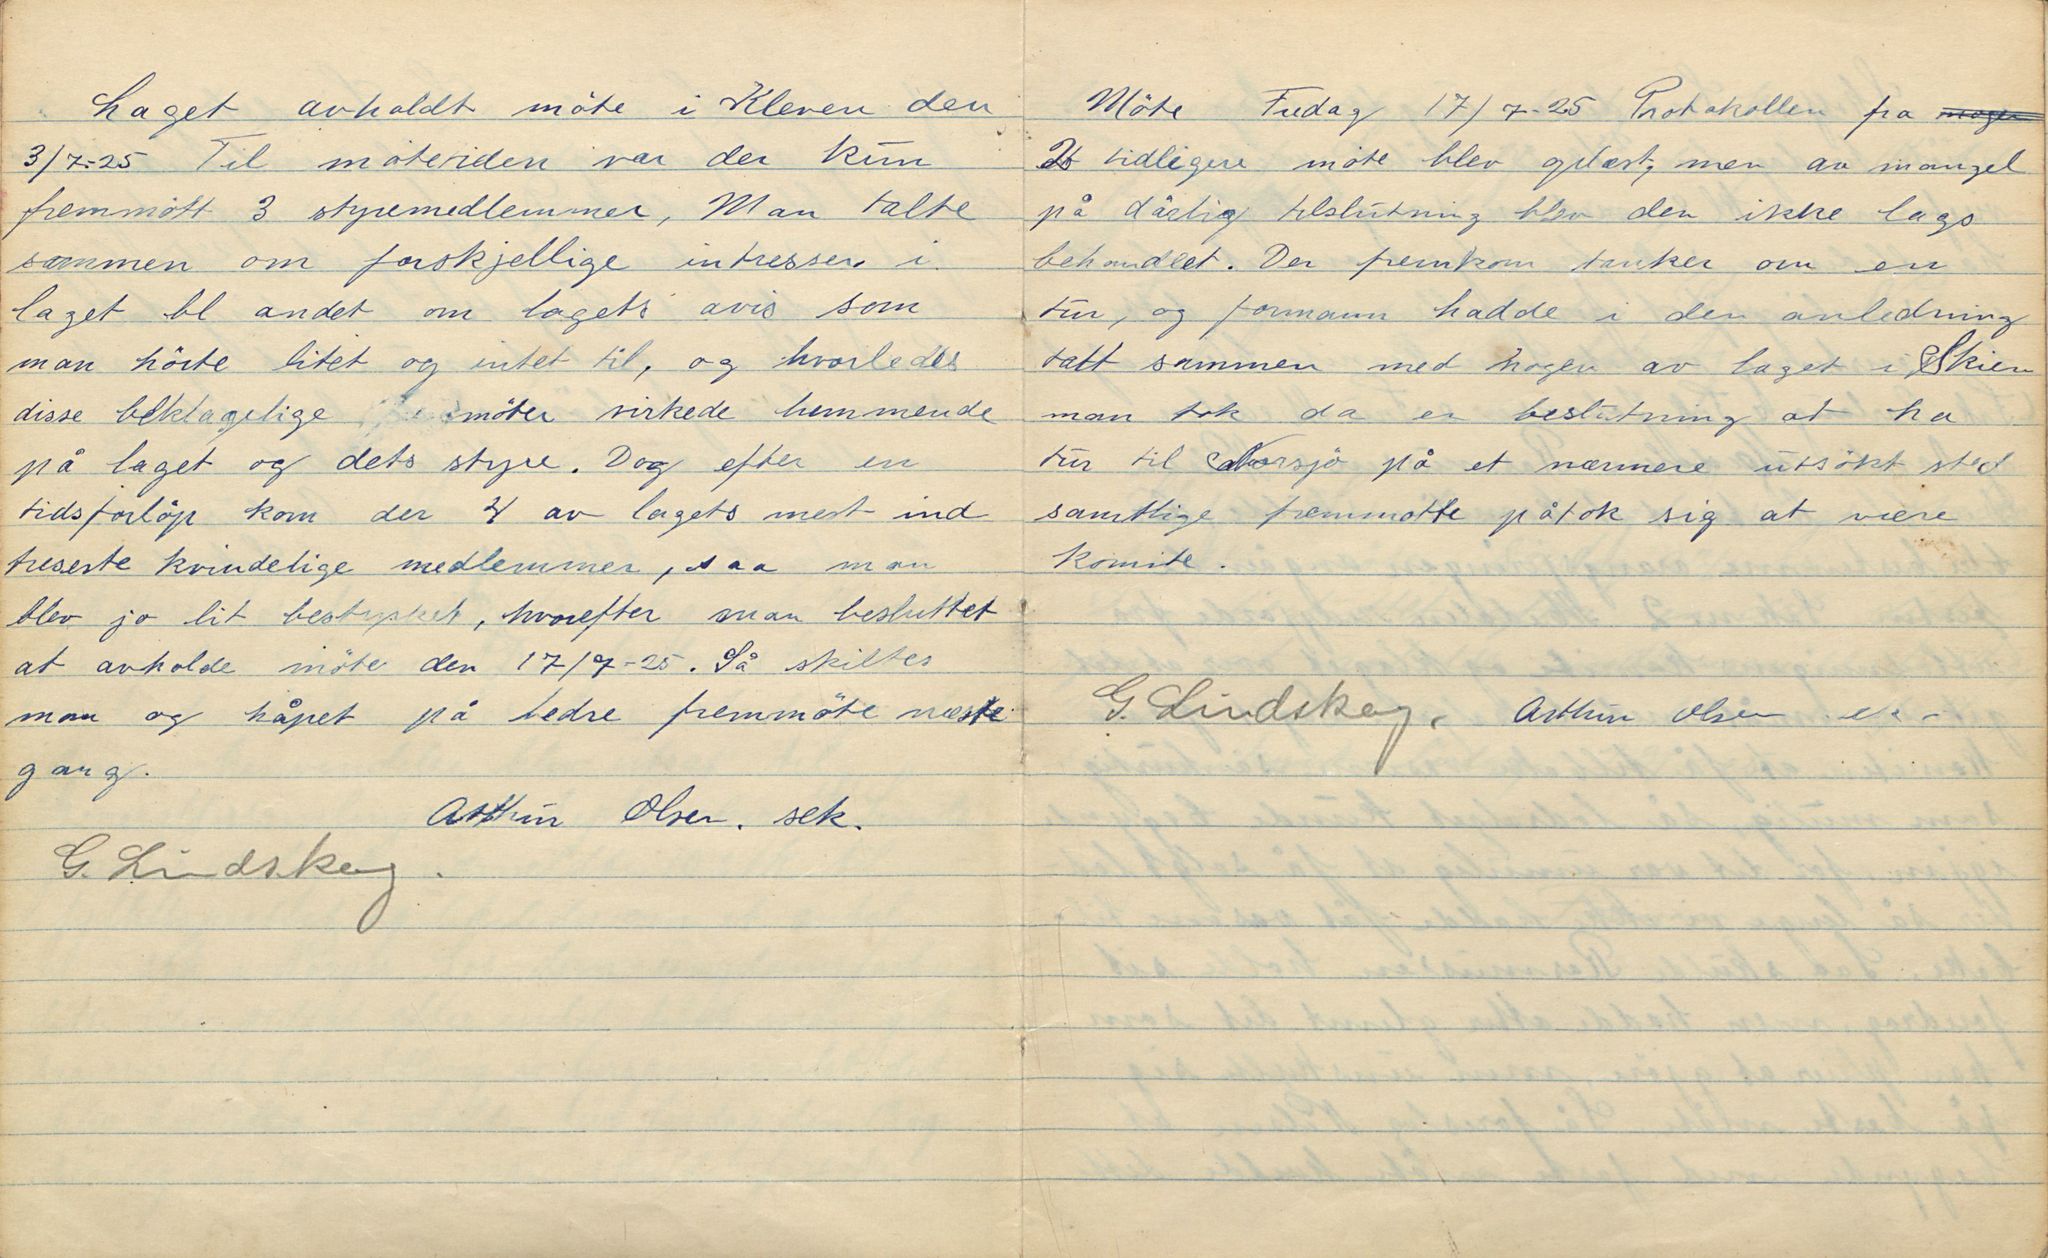 Laget avholdt möte i Kleven den
3/7-25 Til mötetiden var der kun
fremmött 3 styremedlemmer, Man talte
sammen om forskjellige intresser i
laget bl andet om lagets avis som
man hörte litet og intet til, og hvorledes
disse beklagelige möter virkede hemmende
på laget og dets styre. Dog efter en
tidsforlöp kom der 4 av lagets mest ind
treserte kvindelige medlemmer, saa man
blev jo lit bestysket, hvorefter man besluttet
at avholde möte den 17/7-25. Så skiltes
man og håpet på bedre fremmöte næste
gang.
Arthur Olsen. sek.
G. Lindskog.
Möte Fredag 17/7-25 Protokollen fra
tidligere möte blev oplæst, men av mangel
på dårlig tilslutning blev den ikke lags
behandlet. Der fremkom tanker om en
tur, og formann hadde i den anledning
tatt sammen med nogen av laget i Skien
man tok da en beslutning at ha
tur til Norsjö på et nærmere utsökt sted
samtlige fremmötte påtok sig at være
komite.
G. Lindskog. Arthur Olsen